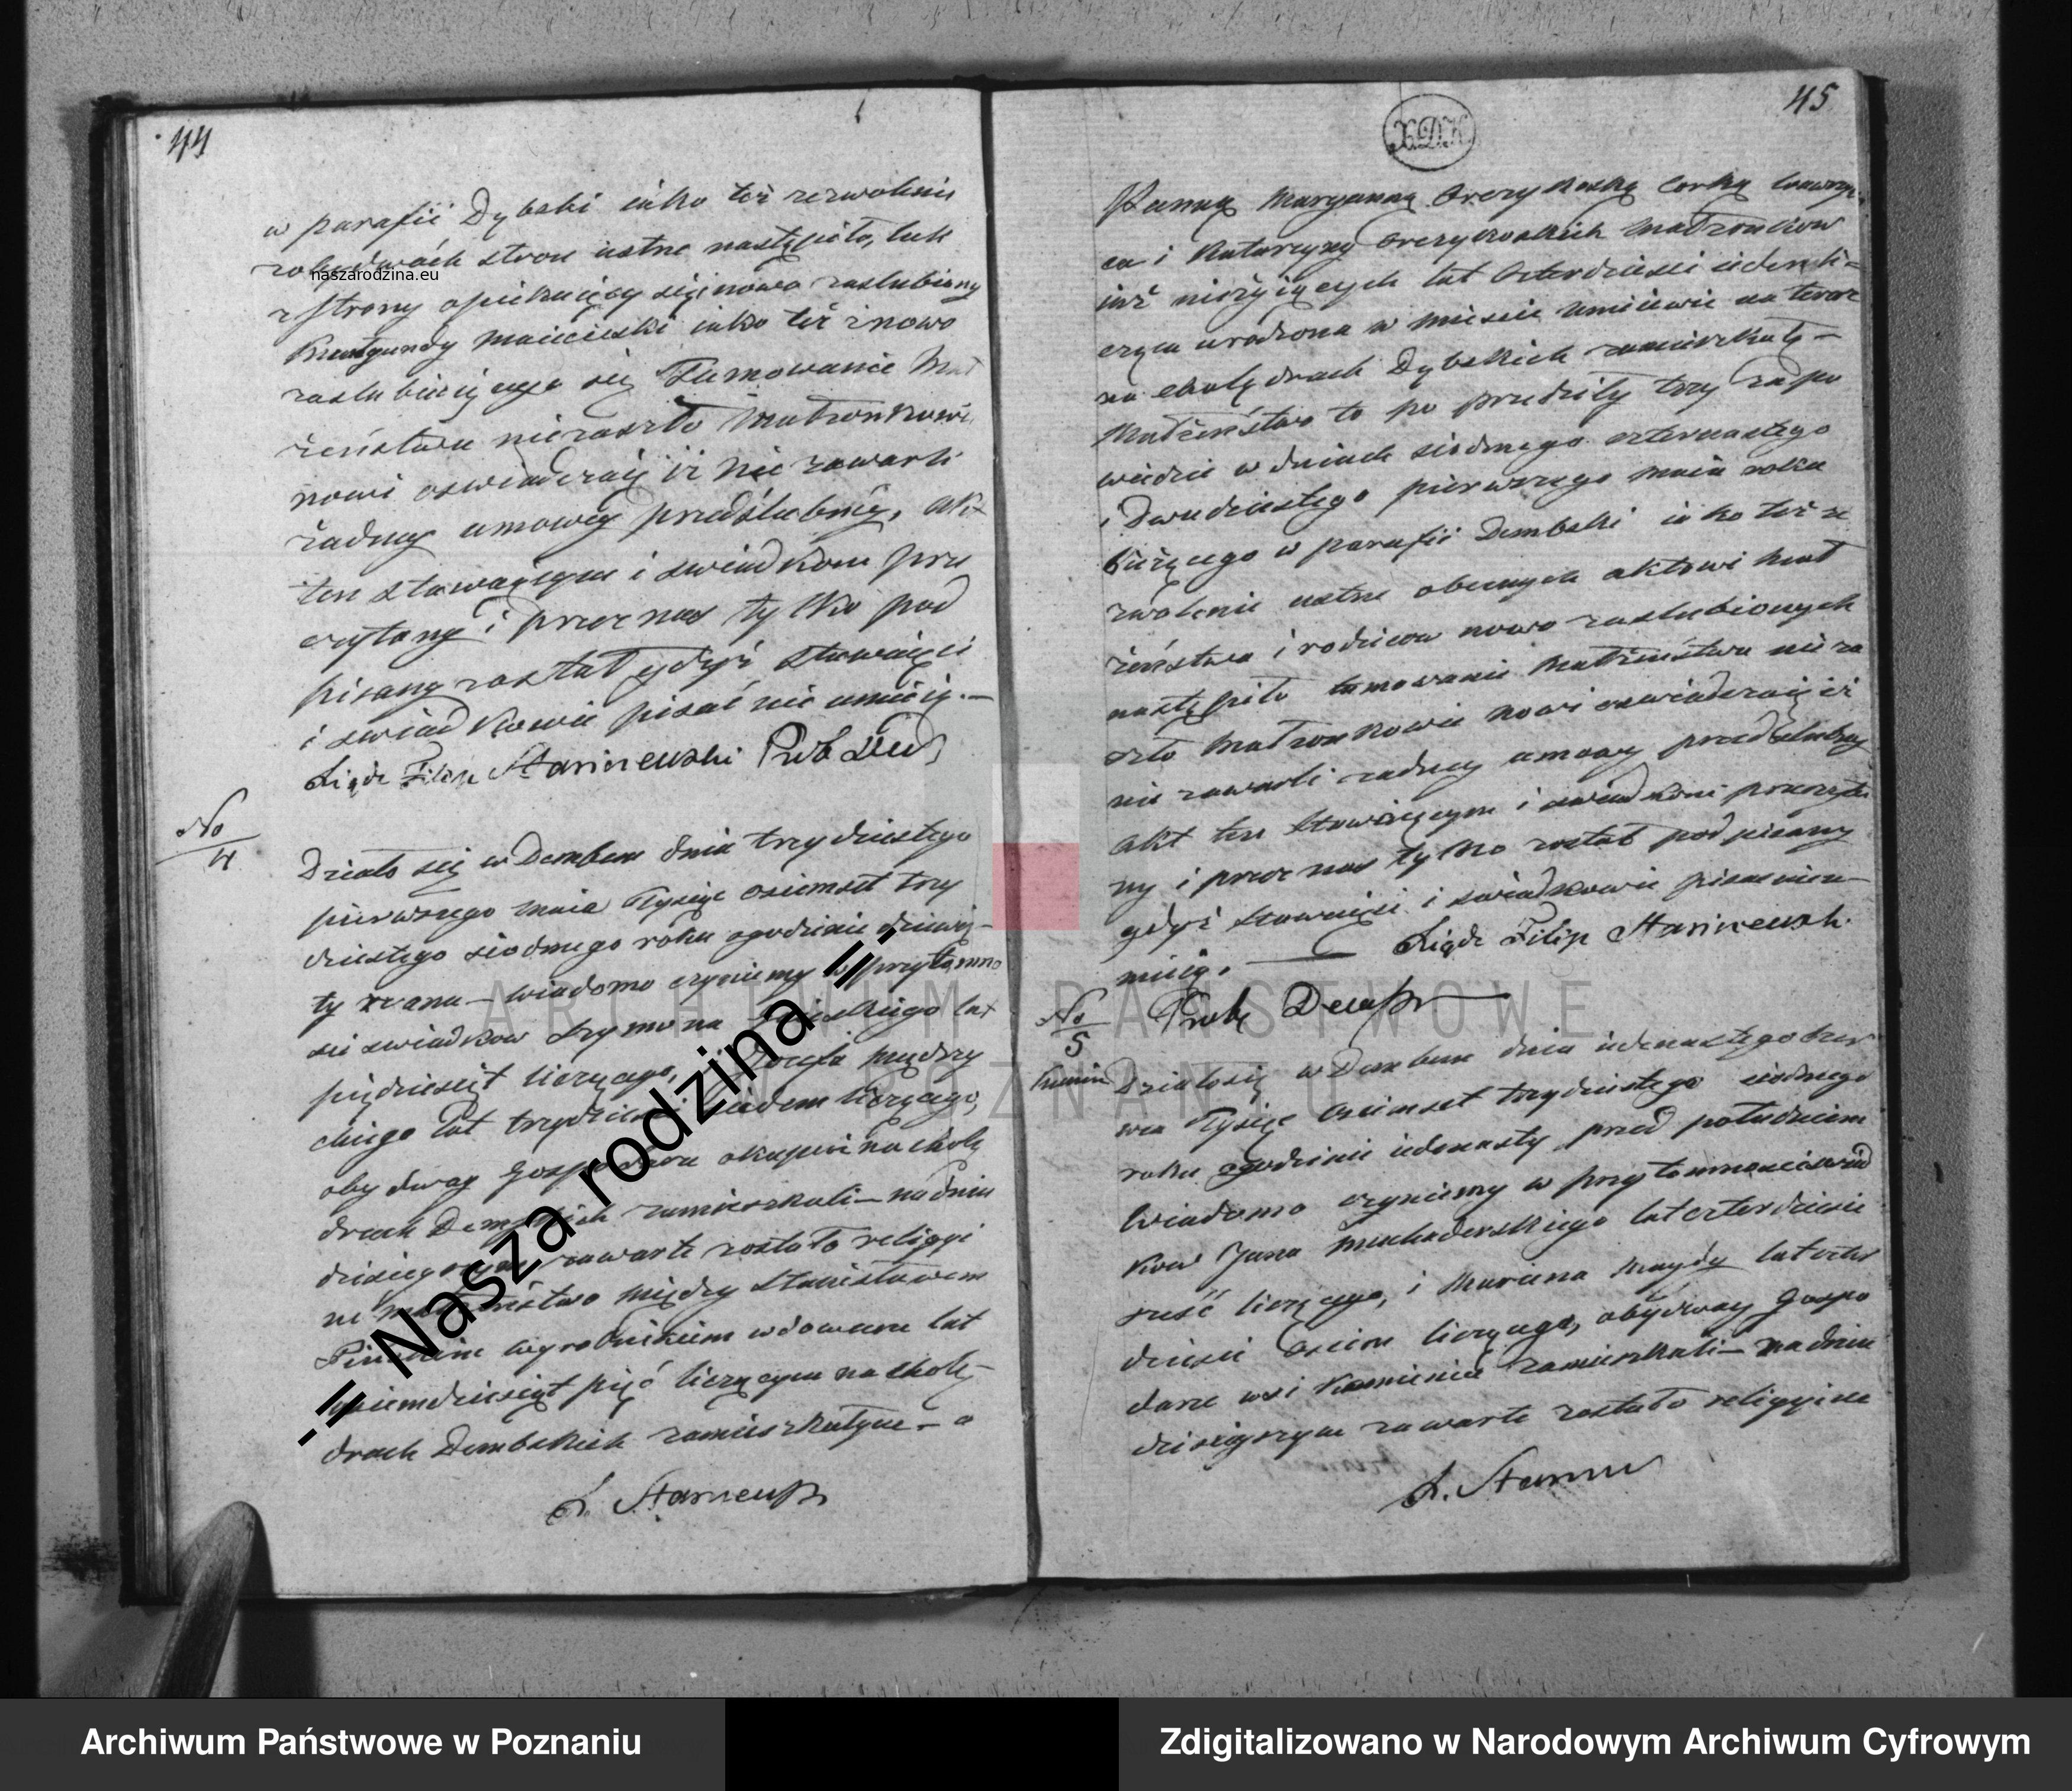 44
w parafii Dybski iako też zezwolenie
z obydwóch stron ustne nastąpiło, tak
z strony opiekuiący się nowo zaślubiony
Kunegundy iako też z nowo
zaślubiaiącego się Tamowanie Mał
żeństwu niezaszło Małżonkowie
nowi oswiadczaią iż nie zawarli
żadney umowy przedślubnéy, akt
ten stawaiącym i swiadkom prze
czytany i przez nas tylko pod
pisany został gdyż stawaiący
i swiadkowie pisać nie umieią.—
Xiądz Filip Prob
No
4
Działo się w Dembem dnia trzydziestego
pierwszego Maia Tysiąc osiemset trzy
dziestego siodmego roku o godzinie dziewią-
ty zrana— wiadomo czyniemy w przytomno
sci swiadkow Szymona lat
pięćdziesiąt liczącego, Jozefa
lat trzydzieści siedem liczącego,
obydway Gospodarze okupni na cholę
drach zamieszkali— na dniu
dzisieyszym zawarte zostało religiyi
ne małżeństwo między Stanisławem
wyrobnikiem wdowcem lat
pięć liczącym na cholę-
drach Dembskich zamieszkałym— a
X.
45
X.D.K.
Panną Maryanną corką Wawrzyń
ca i Katarzyny Małżonkow
iuż nieżyiących lat czterdzieści ieden li=
czącą urodzona w mieście Uniiewie na teraz
na cholędrach Dybskich zamieszkałą—
Małżeństwo to poprzedziły trzy zapo
wiedzie w dniach siodmego czternastego
i Dwudziestego pierwszego maia roku
bieżącego w parafii Dembski iako też ze
zwolenie ustne obecnych aktowi Mał
żeństwa i rodzicow nowo zaslubionych
nastąpiło tamowanie Małżeństwu nieza
szło Małżonkowie nowi oswiadczaią iż
nie zawarli żadney umowy przedślubny
Akt ten stawaiącym i swiadkom przeczyta
ny i przez nas tylko został podpisany
gdyż stawaiący i swiadkowie pisać nieu—
mieią.— Xiądz Filip
Prob
No
5
Działo się w Dembem dnia iedenastego Czer
wca Tysiąc Osiemset trzydziestego siodmego
roku o godzinie iedenasty przed południem
Wiadomo czyniemy w przytomności swiad
kow Jana lat czterdzieści
sześć liczącego, i Marcina lat czter
dzieści osiem liczącego, obydway Gospo
darze wsi zamieszkali— na dniu
dzisieyszym zawarte zostało religiyine
X.
naszarodzina.eu
-:= Nasza rodzina =:-
ARCHIWUM PAŃSTWOWE
W POZNANIU
Archiwum Państwowe w Poznaniu
Zdigitalizowano w Narodowym Archiwum Cyfrowym